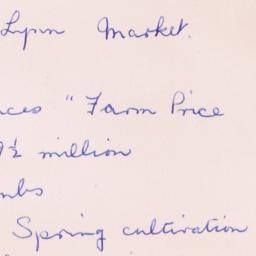 Lynn Market.
" Farm Price
½ million
Spring cultivation